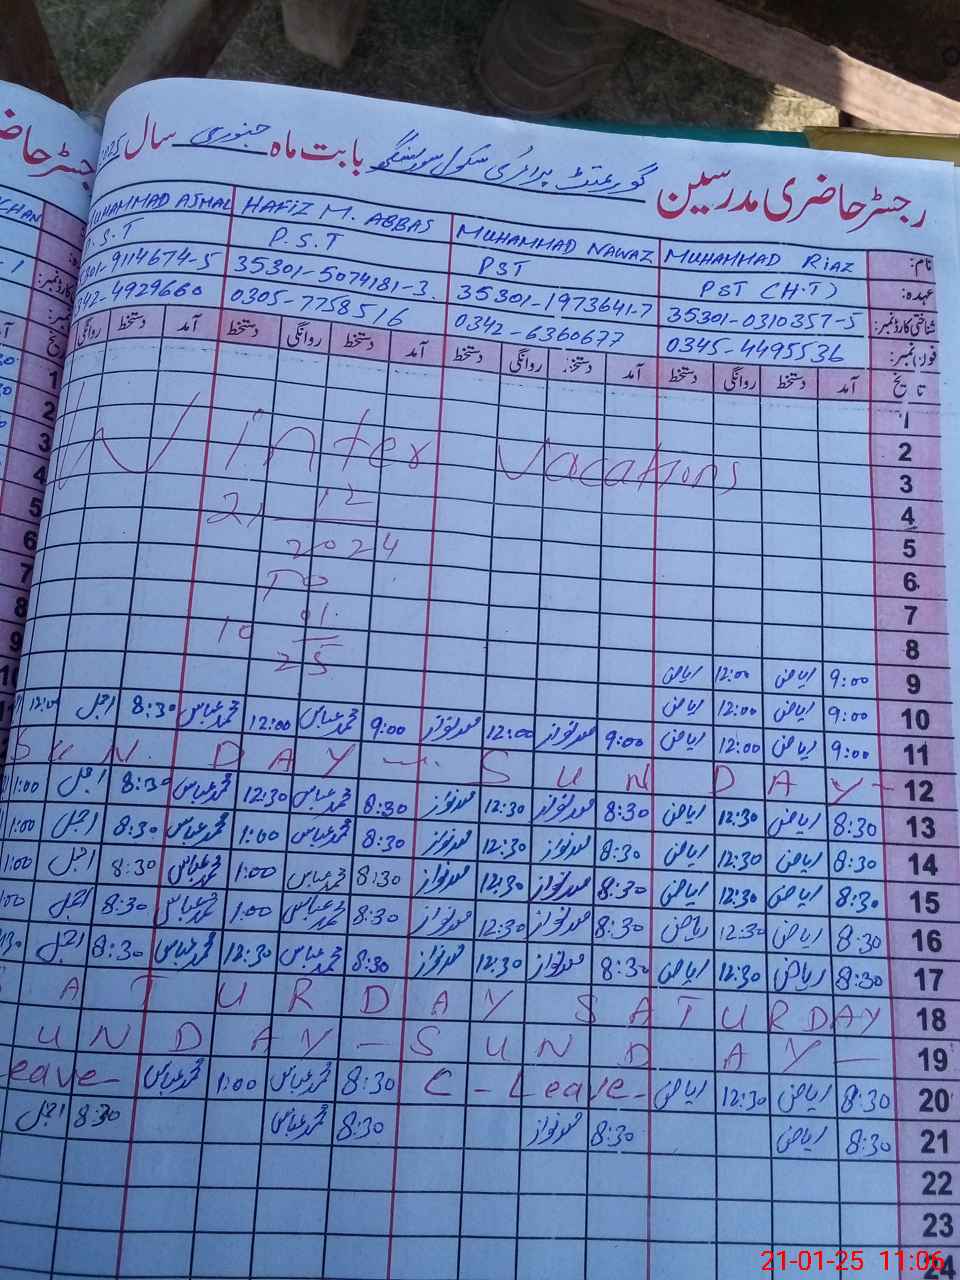 رجسٹر حاضری مدرسین گورنمنٹ پرائمری سکول بابت ماہ جنوری سال 2025
نام: MUHAMMAD RIAZ MUHAMMAD NAWAZ HAFIZ M. ABBAS MUHAMMAD AJMAL
عہدہ: PST (H.T) PST P.S.T P.S.T
شناختی کارڈ نمبر: 35301-0310357-5 35301-1973641-7 35301-5074181-3. 35301-9114674-5
فون نمبر: 0345-4495536 0342-6360677 0305-7758516 0342-4929660
تاریخ آمد دستخط روانگی دستخط آمد دستخط روانگی دستخط آمد دستخط روانگی دستخط آمد دستخط روانگی
1
2
3
Winter Vacations
4
21 12 2024
5
6
TO
7
10 01. 25
8
9 9:00 ریاض 12:00 ریاض
10 9:00 ریاض 12:00 ریاض
11 9:00 ریاض 12:00 ریاض 9:00 محمد نواز 12:00 محمد نواز 9:00 محمد عباس 12:00 محمد عباس 8:30 اجمل 12:00
12 SUN. DAY - SUNDAY -
13 8:30 ریاض 12:30 ریاض 8:30 محمد نواز 12:30 محمد نواز 8:30 محمد عباس 12:30 محمد عباس 8:30 اجمل 1:00
14 8:30 ریاض 12:30 ریاض 8:30 محمد نواز 12:30 محمد نواز 8:30 محمد عباس 1:00 محمد عباس 8:30 اجمل 1:00
15 8:30 ریاض 12:30 ریاض 8:30 محمد نواز 12:30 محمد نواز 8:30 محمد عباس 1:00 محمد عباس 8:30 اجمل 1:00
16 8:30 ریاض 12:30 ریاض 8:30 محمد نواز 12:30 محمد نواز 8:30 محمد عباس 1:00 محمد عباس 8:30 اجمل 1:00
17 8:30 ریاض 12:30 ریاض 8:30 محمد نواز 12:30 محمد نواز 8:30 محمد عباس 12:30 محمد عباس 8:30 اجمل
18 SATURDAY SATURDAY
19 SUNDAY - SUNDAY -
20 8:30 ریاض 12:30 ریاض C - Leave - 8:30 محمد عباس 1:00 محمد عباس eave -
21 8:30 ریاض 8:30 محمد نواز 8:30 محمد عباس 8:30 اجمل
22
23
24
21-01-25 11:06